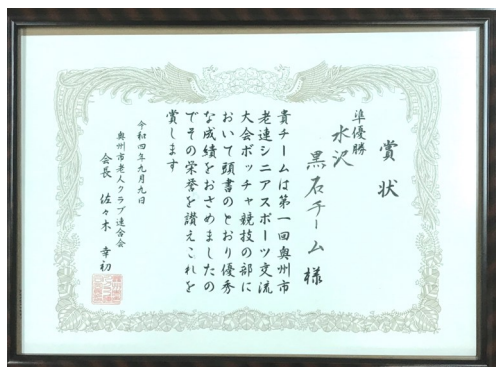 賞状
準優勝
水沢
黒石チーム様
貴チームは第一回奥州市
老連シニアスポーツ交流
大会ボッチャ競技の部に
おいて頭書のとおり優秀
な成績をおさめましたの
でその栄誉を讃えこれを
賞します
令和四年九月九日
奥州市老人クラブ連合会
会長 佐々木 幸初